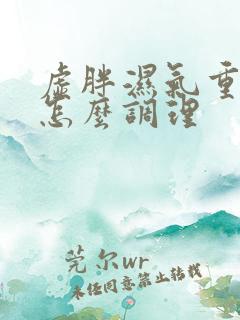 虛胖濕氣重
怎麼調理
莞尔wr
未经同意禁止转载